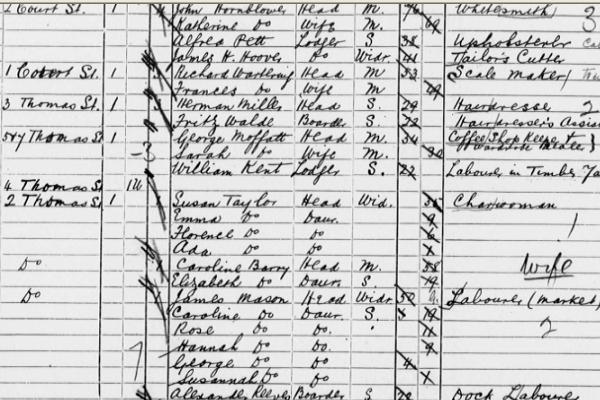 2 Court St. 1 John Hornblower Head M. Whitesmith 3
Katherine Do Wife M. 69
Alfred Pett Lodger S. 38 Upholsterer
James K. Hoover Do Widr. 41 Tailor's Cutter
1 Court St. 1 Richard Head M 53 Scale maker
Frances Do Wife M 49
3 Thomas St. 1 Herman Miller Head S. 29 Hairdresse 2
Fritz Walde Boarder S. 22 Hairdresser's Assis
5&7 Thomas St 1 George Moffatt Head M 34 Coffee Shop Keeper &
-3 Sarah Do Wife M. 30
William Kent Lodger S. 22 Labourer in Timber Ya
4 Thomas St
2 Thomas St. 1 Susan Taylor Head Wid. Charwoman
Emma Do Daur. 9 1
Florence Do Do 6
Ada Do Do x
Do Caroline Barry Head M. 58 Wife
Elizabeth Do Daur. S. 19
Do James Mason Head Widr 50 Labourer (market)
Caroline Do Daur. S. 19
Rose Do Do. 11 2
Hannah Do Do. 9
George Do Do 4
Susannah Do Do x
Alexander Reeves Boarder S 22 Dock Laboure